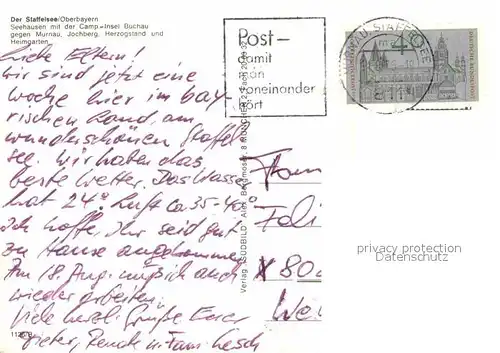 Der Staffelsee/Oberbayern
Seehausen mit der Camp.-Insel Buchau
gegen Murnau, Jochberg, Herzogstand und
Heimgarten
Liebe Eltern!
Wir sind jetzt eine
Woche hier im bay-
rischen Land am
wunderschönen Staffel
see. Wir haben das
beste Wetter. Das Wasser
hat 24° Luft ca 35-40°
Ich hoffe, Ihr seid gut
zu Hause angekommen
Am 18. Aug. muß ich auch
wieder arbeiten.
Viele herzl. Grüße Euer
Dieter, Renate u. Fam.
1125/8
Verlag "SÜDBILD" Alex. Bergmoser, 8 MÜNCHEN 2
Post-
damit
man
voneinander
hört
MURNAU, STAFFELSEE
40
DEUTSCHE BUNDESPOST
Fam
X 80
privacy protection
Datenschutz